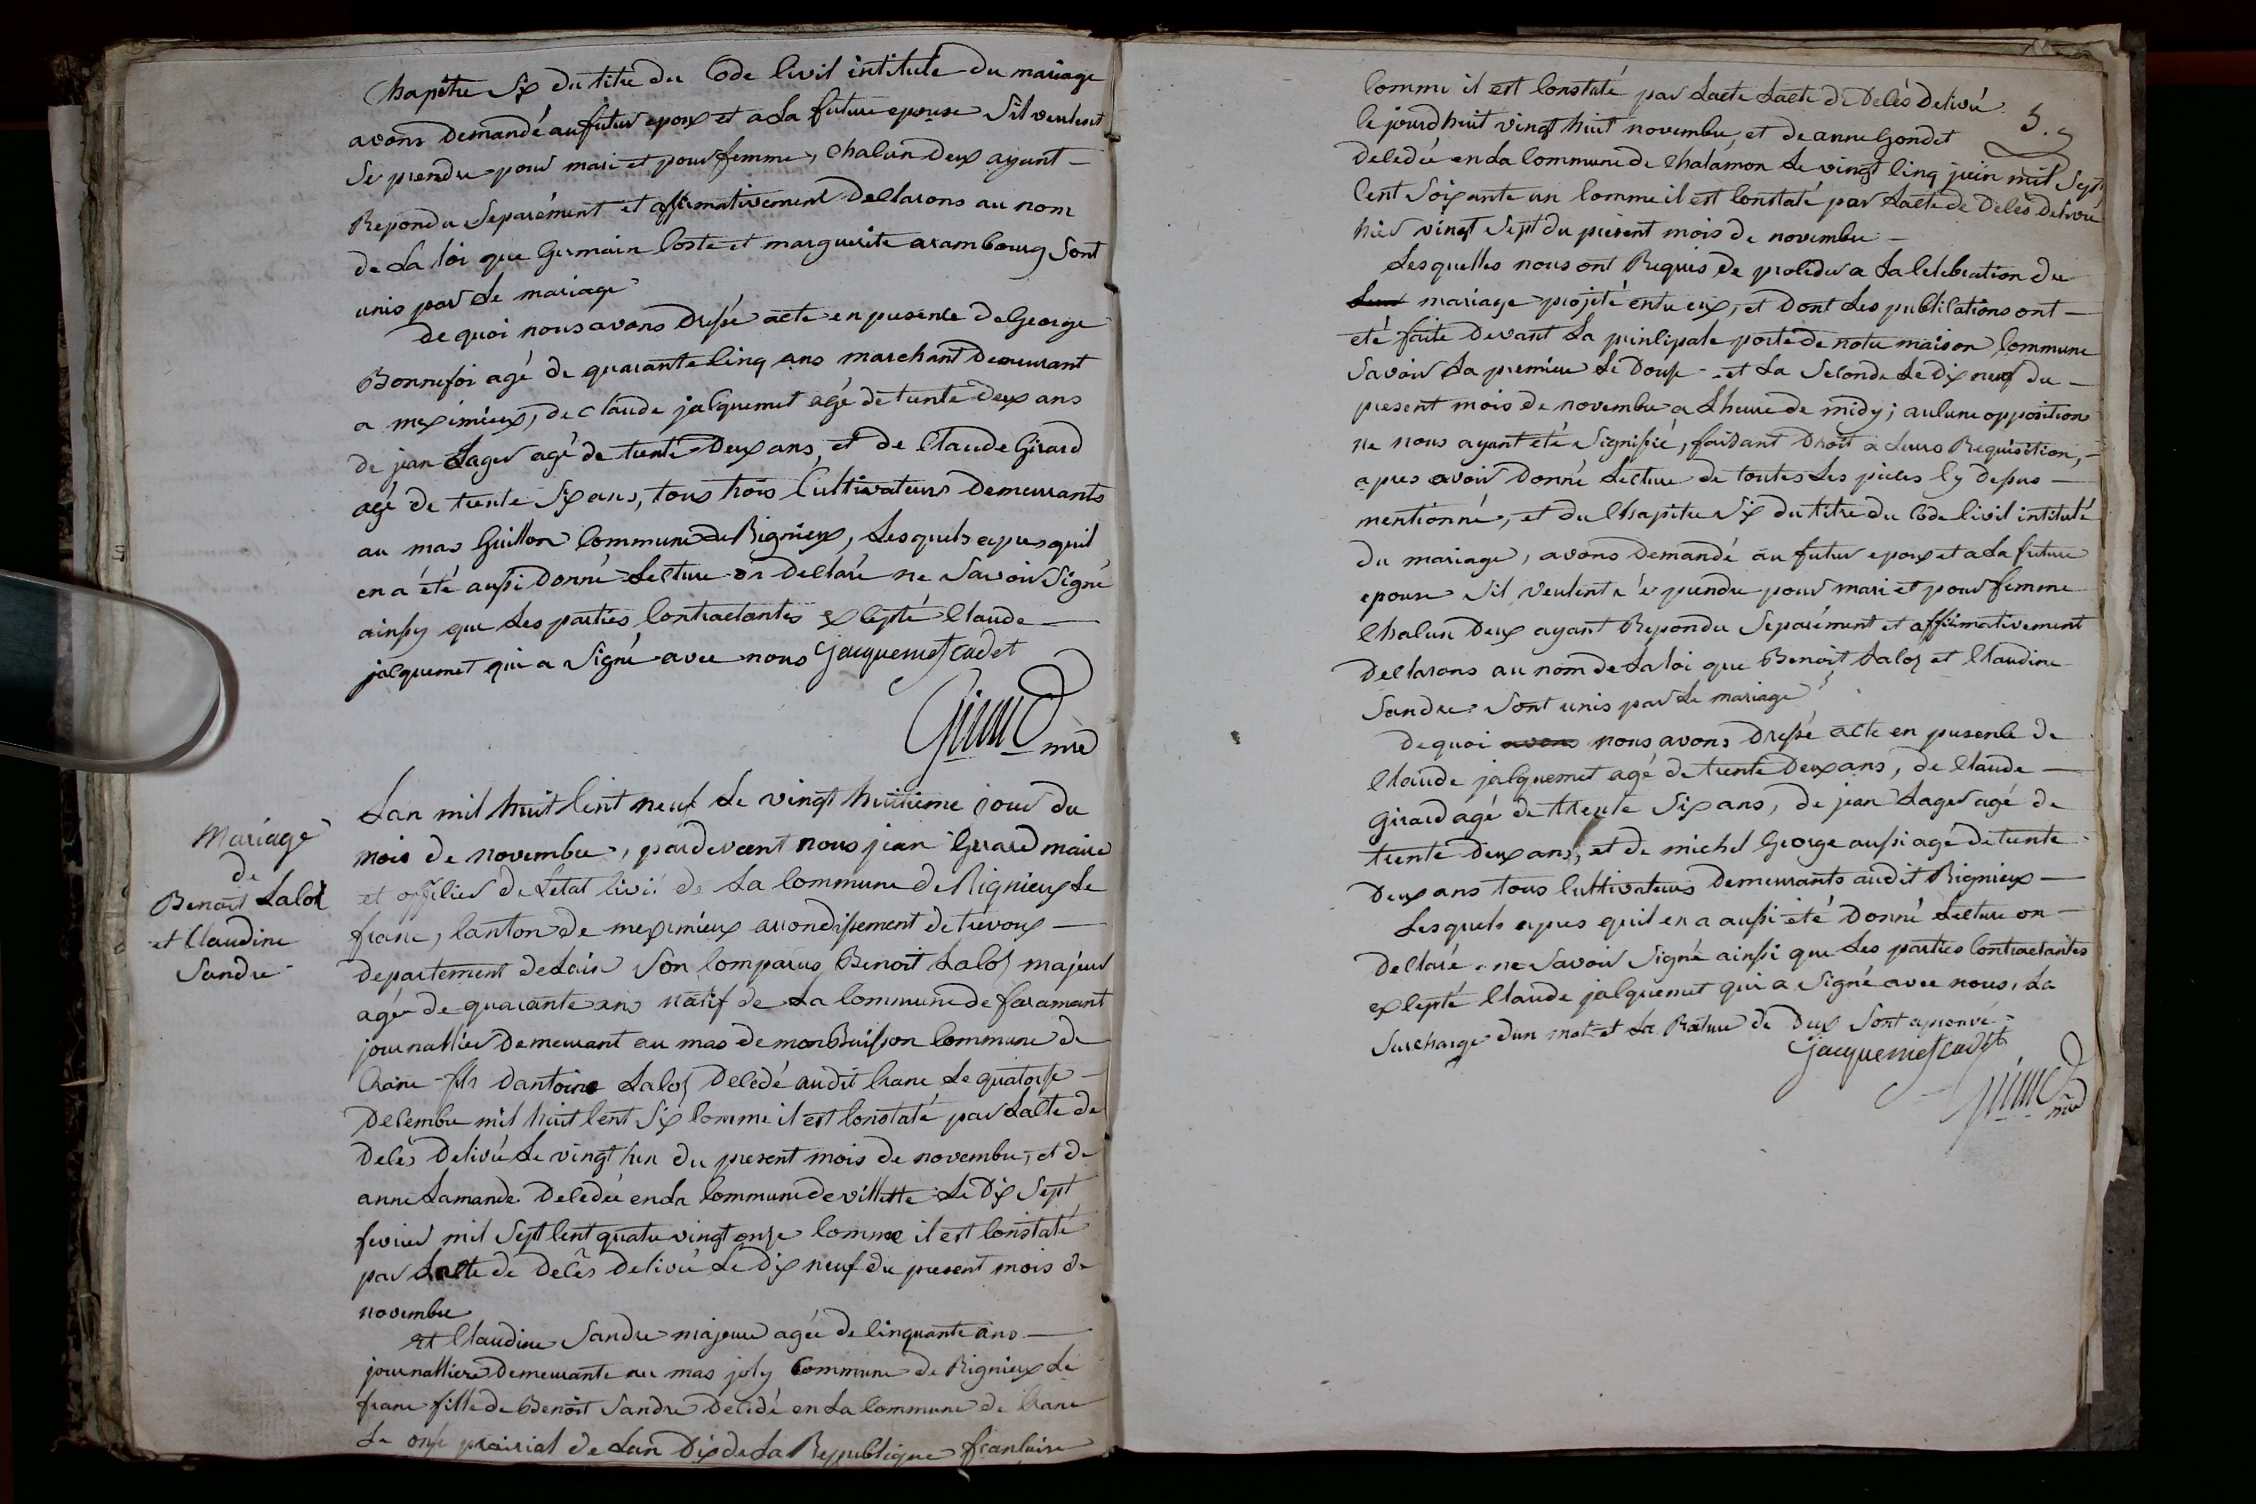 Chapitre Six du titre du Code Civil intitulé du mariage
avons demandé au futur epoux et a La future epouse Sil veulent
Se prendre pour mari et pour femme, chacun deux ayant
Repondu Separément et affirmativement Declarons au nom
de La loi que Germain Coste et marguerite arambourg Sont
unis par Le mariage
De quoi nous avons Dressé acte en presence de George
Bonnefoi agé de quarante Cinq ans marchant Demeurant
a meximieux, de Claude jacquemet agé de trente deux ans
de jean Lager agé de trente Deux ans, et de Claude Girard
agé de trente Six ans, tous trois Cultivateurs Demeurants
au mas Guillon Commune de Rignieux, Lesquels apres quil
en a été aussi Donné Lecture on Declaré ne Savoir Signé
ainsy que Les parties Contractantes Excepté Claude
jacquemet qui a Signé avec nous jacquemet cadet
Girard mre
Mariage
de
Benoit Laloz
et Claudine
Sandre
Lan mil huit Cent neuf Le vingt huitieme jour du
mois de novembre, pardevant nous jean Girard maire
et officier de Letat Civil de La Commune de Rignieux Le
franc, Canton de meximieux arrondissement de trevoux
departement de Lain Son Comparus, Benoit Laloz majeur
agé de quarante ans natif de La Commune de faramant
journallier Demeurant au mas de monBuisson Commune de
Crane fils dantoine Laloz Decedé audit Crane Le quatorze
Decembre mil huit Cent Six Comme il est Constaté par Lacte de
Decès Delivré Le vingt un du present mois de novembre, et de
anne Lamande Decedée en La Commune de villette Le Dix Sept
fevrier mil Sept Cent quatre vingt onze Comme il est Constaté
par Lacte de Decès Delivré Le Dix neuf du present mois de
novembre
et Claudine Sandre majeure agée de Cinquante ans
journalliere Demeurante au mas joly Commune de Rignieux Le
franc fille de Benoit Sandre Decedé en La Commune de Crane
Le onze prairial de Lan Dix de La Republique francaise
3.
Comme il est Constaté par Lacte Lacte de Decès Delivré
Ce jourdhuit vingt huit novembre et de anne Gondet
Decedée en La Commune de Chalamon Le vingt Cinq juin mil Sept
Cent Soixante un Comme il est Constaté par Lacte de Decès Delivré
hier vingt Sept du present mois de novembre
Lesquelles nous ont Requis de proceder a La Celebration du
Leur mariage projeté entre eux, et Dont Les publications ont
eté faite Devant La principale porte de notre maison Commune
Savoir La premiere Le Douze et La Seconde Le Dix neuf du
present mois de novembre a Lheure de midy; aucune opposition
ne nous ayant été Signifié, faisant Droit a Leurs Requisition,
apres avoir Donné Lecture de toutes Les pieces Cy Depus
mentionné, et du Chapitre Six du titre du Code Civil intitulé
du mariage, avons Demandé au futur epoux et a La future
epouse Sil veulent Se prendre pour mari et pour femme
Chacun Deux ayant Repondu Separément et affirmativement
Declarons au nom de La loi que Benoit Laloz et Claudine
Sandre Sont unis par Le mariage
De quoi avons nous avons Dressé acte en presence de
Claude jacquemet agé de trente Deux ans, de Claude
Girard agé de trente Six ans, de jean Lager agé de
trente Deux ans, et de michel George aussi agé de trente
Deux ans tous Cultivateurs Demeurants audit Rignieux
Lesquels apres quil en a aussi été Donné Lecture on
Declaré ne Savoir Signé ainsi que Les parties Contractantes
excepté Claude jacquemet qui a Signé avec nous, La
Surcharge dun mot et La Rature de Deux Sont aprouvé
jacquemet cadet
Girard mre